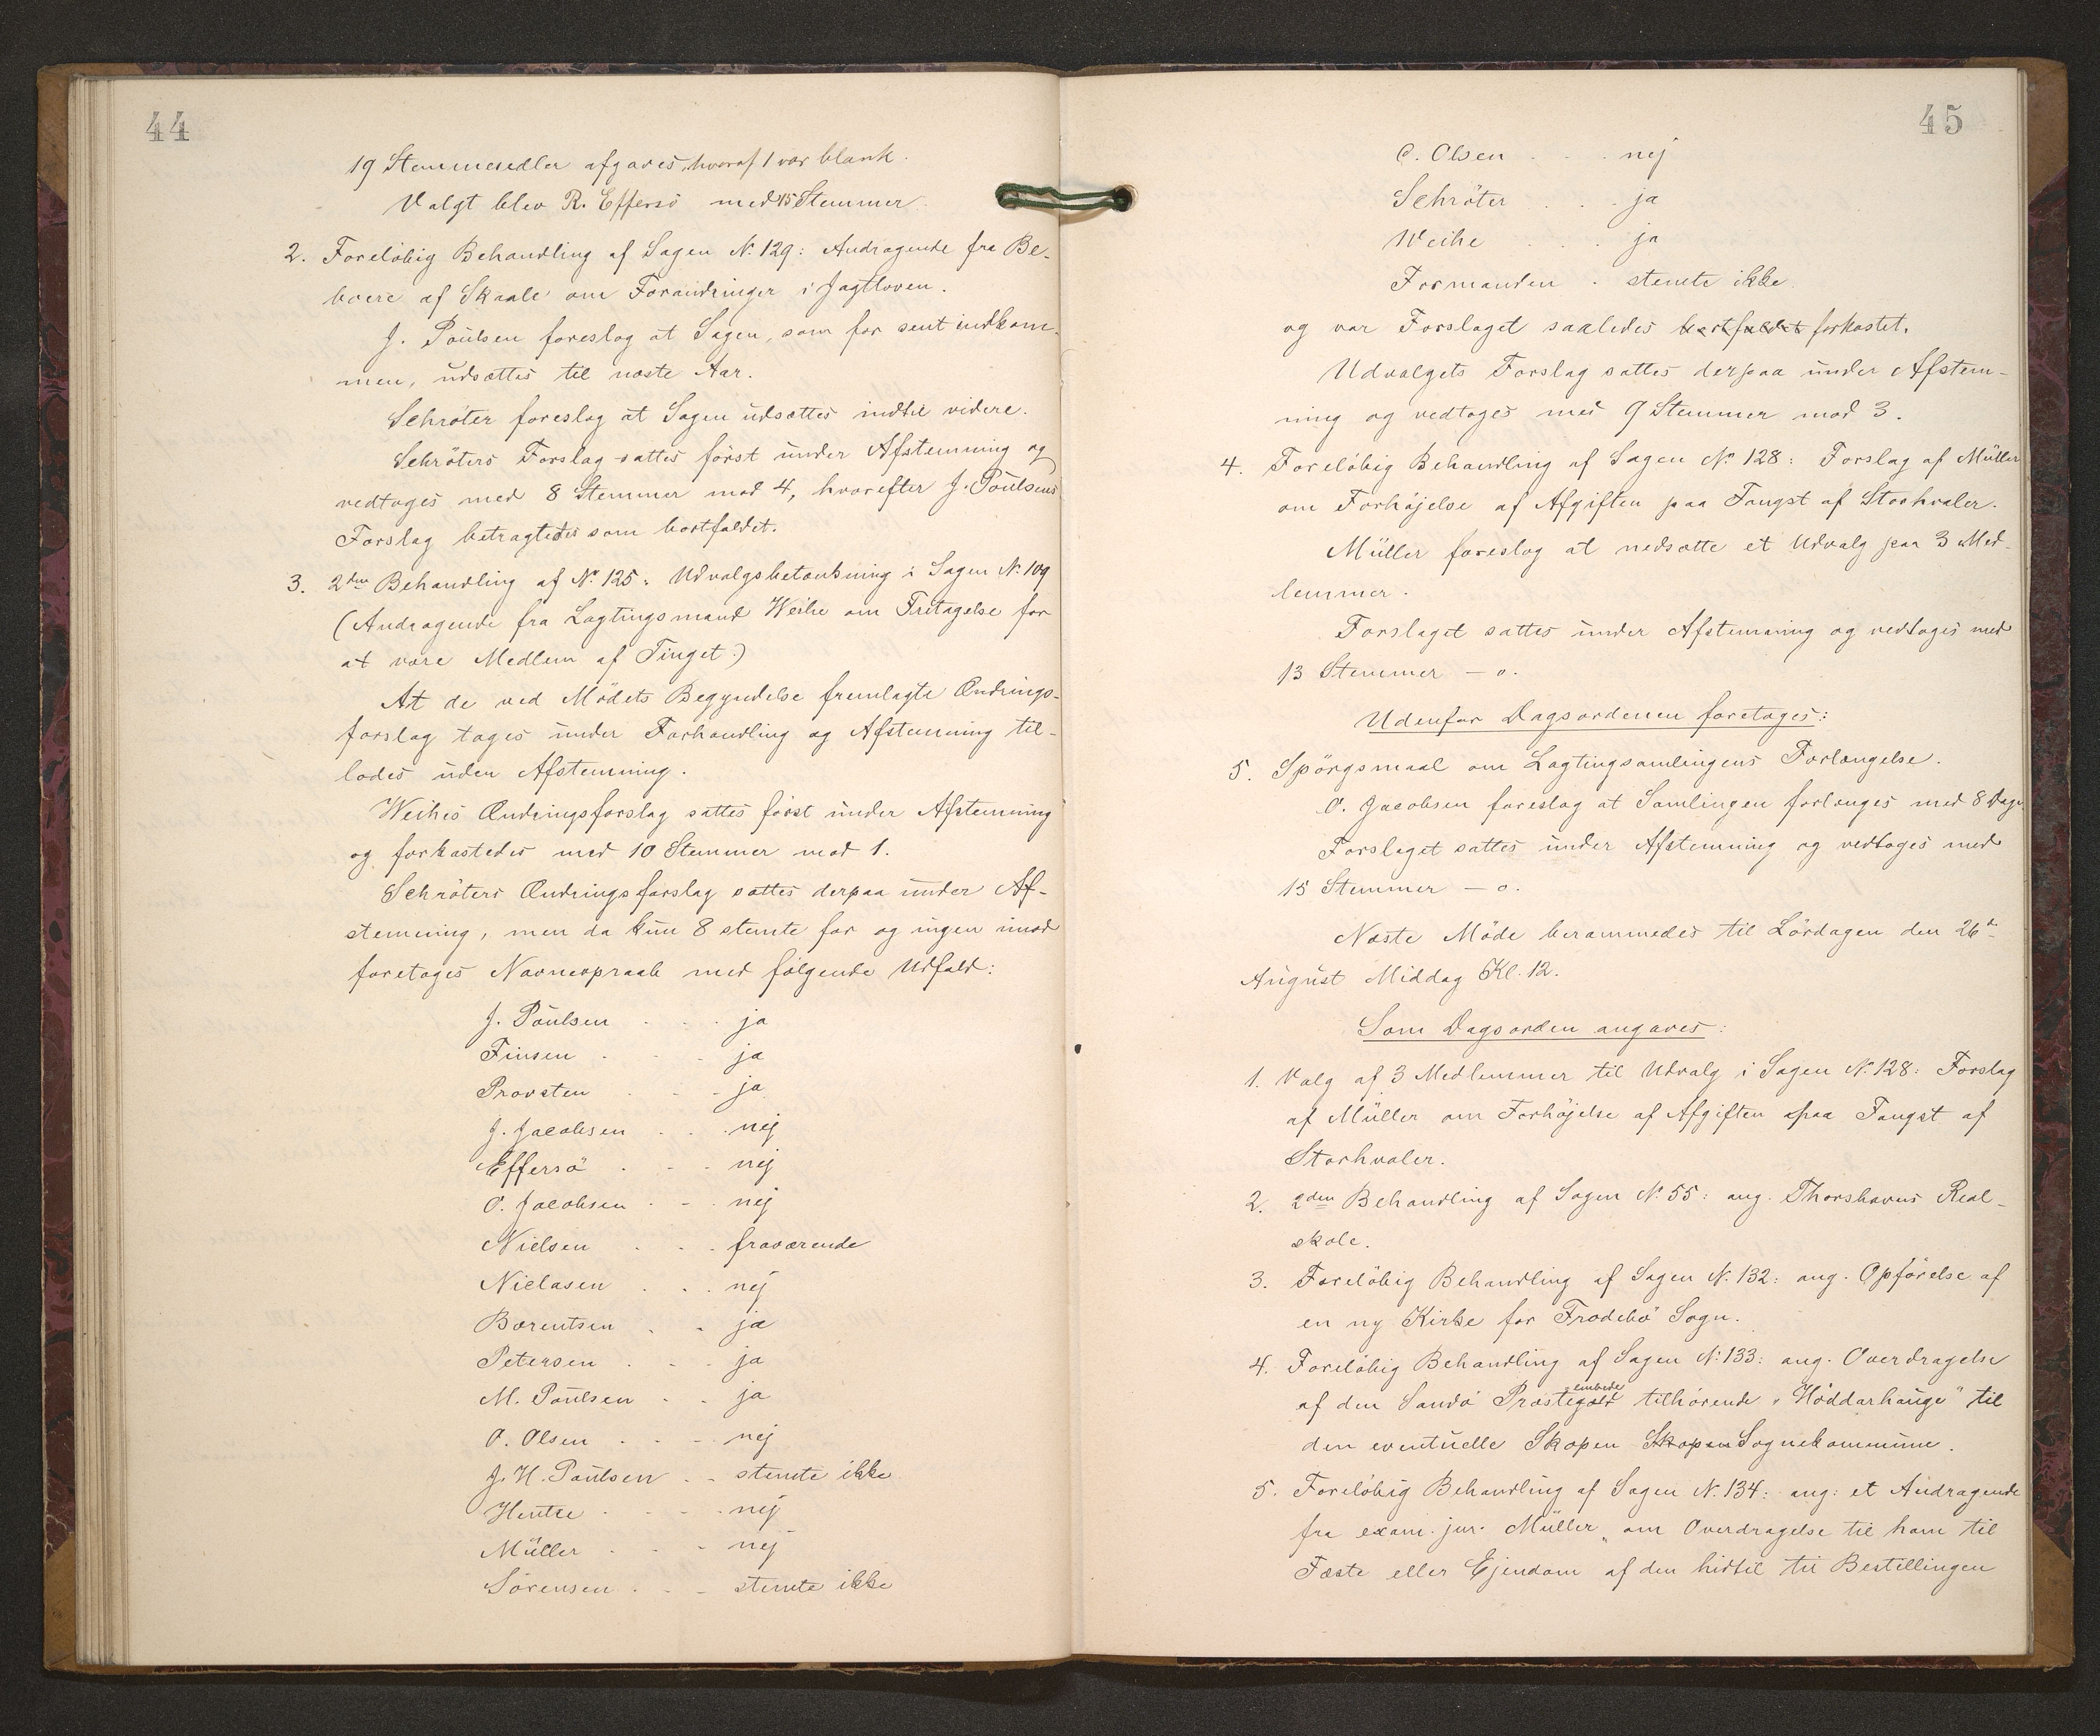 44
19 Stemmesedler afgaves, hvoraf 1 var blank.
Valgt blev R. Effersö med 15 Stemmer.
2. Forelöbig Behandling af Sagen No. 129: Andragende fra Be-
boere af Skaale om Forandringer i Jagtloven.
J. Poulsen foreslog at Sagen, som for sent indkom-
men, udsættes til næste Aar.
Schröter foreslog at Sagen udsættes indtil videre.
Schröters Forslag sattes först under Afstemning og
vedtoges med 8 Stemmer mod 4, hvorefter J. Poulsens
Forslag betragtedes som bortfaldet.
3. 2den Behandling af No. 125: Udvalgsbetænkning i Sagen No. 109
(Andragende fra Lagtingsmand Weihe om Fritagelse for
at være Medlem af Tinget.)
At de ved Mödets Begyndelse fremlagte Ændrings-
forslag tages under Forhandling og Afstemning til-
lodes uden Afstemning.
Weihes Ændringsforslag sattes först under Afstemning
og forkastedes med 10 Stemmer mod 1.
Schröters Ændringsforslag sattes derpaa under Af-
stemning, men da kun 8 stemte for og ingen imod
foretoges Navneopraab med fölgende Udfald:
J. Poulsen . . . ja
Finsen . . . ja
Provsten . . . ja
J. Jacobsen . . . nej
Effersö . . . nej
O. Jacobsen . . . nej
Nielsen . . . fraværende
Niclasen . . . nej
Bærentsen . . ja
Petersen . . . ja
M. Poulsen . . ja
O. Olsen . . . nej
J. H. Poulsen . . stemte ikke
Hentze . . . . nej
Müller . . . nej
Sörensen . . . stemte ikke
45
C. Olsen . . . nej
Schröter . . . ja
Weihe . . . ja
Formanden . stemte ikke
og var Forslaget saaledes bortfaldet forkastet.
Udvalgets Forslag sattes derpaa under Afstem-
ning og vedtoges med 9 Stemmer mod 3.
4. Forelöbig Behandling af Sagen No. 128: Forslag af Müller
om Forhöjelse af Afgiften paa Fangst af Storhvaler.
Müller foreslog at nedsætte et Udvalg paa 3 Med-
lemmer.
Forslaget sattes under Afstemning og vedtoges med
13 Stemmer – o.
Udenfor Dagsordenen foretoges:
5. Spörgsmaal om Lagtingsamlingens Forlængelse.
O. Jacobsen foreslog at Samlingen forlænges med 8 Dage.
Forslaget sattes under Afstemning og vedtoges med
15 Stemmer – o.
Næste Möde berammedes til Lördagen den 26de
August Middag Kl. 12.
Som Dagsorden angaves:
1. Valg af 3 Medlemmer til Udvalg i Sagen No. 128: Forslag
af Müller om Forhöjelse af Afgiften paa Fangst af
Storhvaler.
2. 2den Behandling af Sagen No. 55: ang. Thorshavns Real-
skole.
3. Forelöbig Behandling af Sagen No. 132: ang. Opförelse af
en ny Kirke for Frodebö Sogn.
4. Forelöbig Behandling af Sagen No. 133: ang. Overdragelse
af den Sandö Præstegæld embede tilhörende "Höddarhauge" til
den eventuelle Skopen Skopen Sognekommune.
5. Forelöbig Behandling af Sagen No. 134: ang: et Andragende
fra exam. jur. Müller "om Overdragelse til ham til
Fæste eller Ejendom af den hidtil til Bestillingen